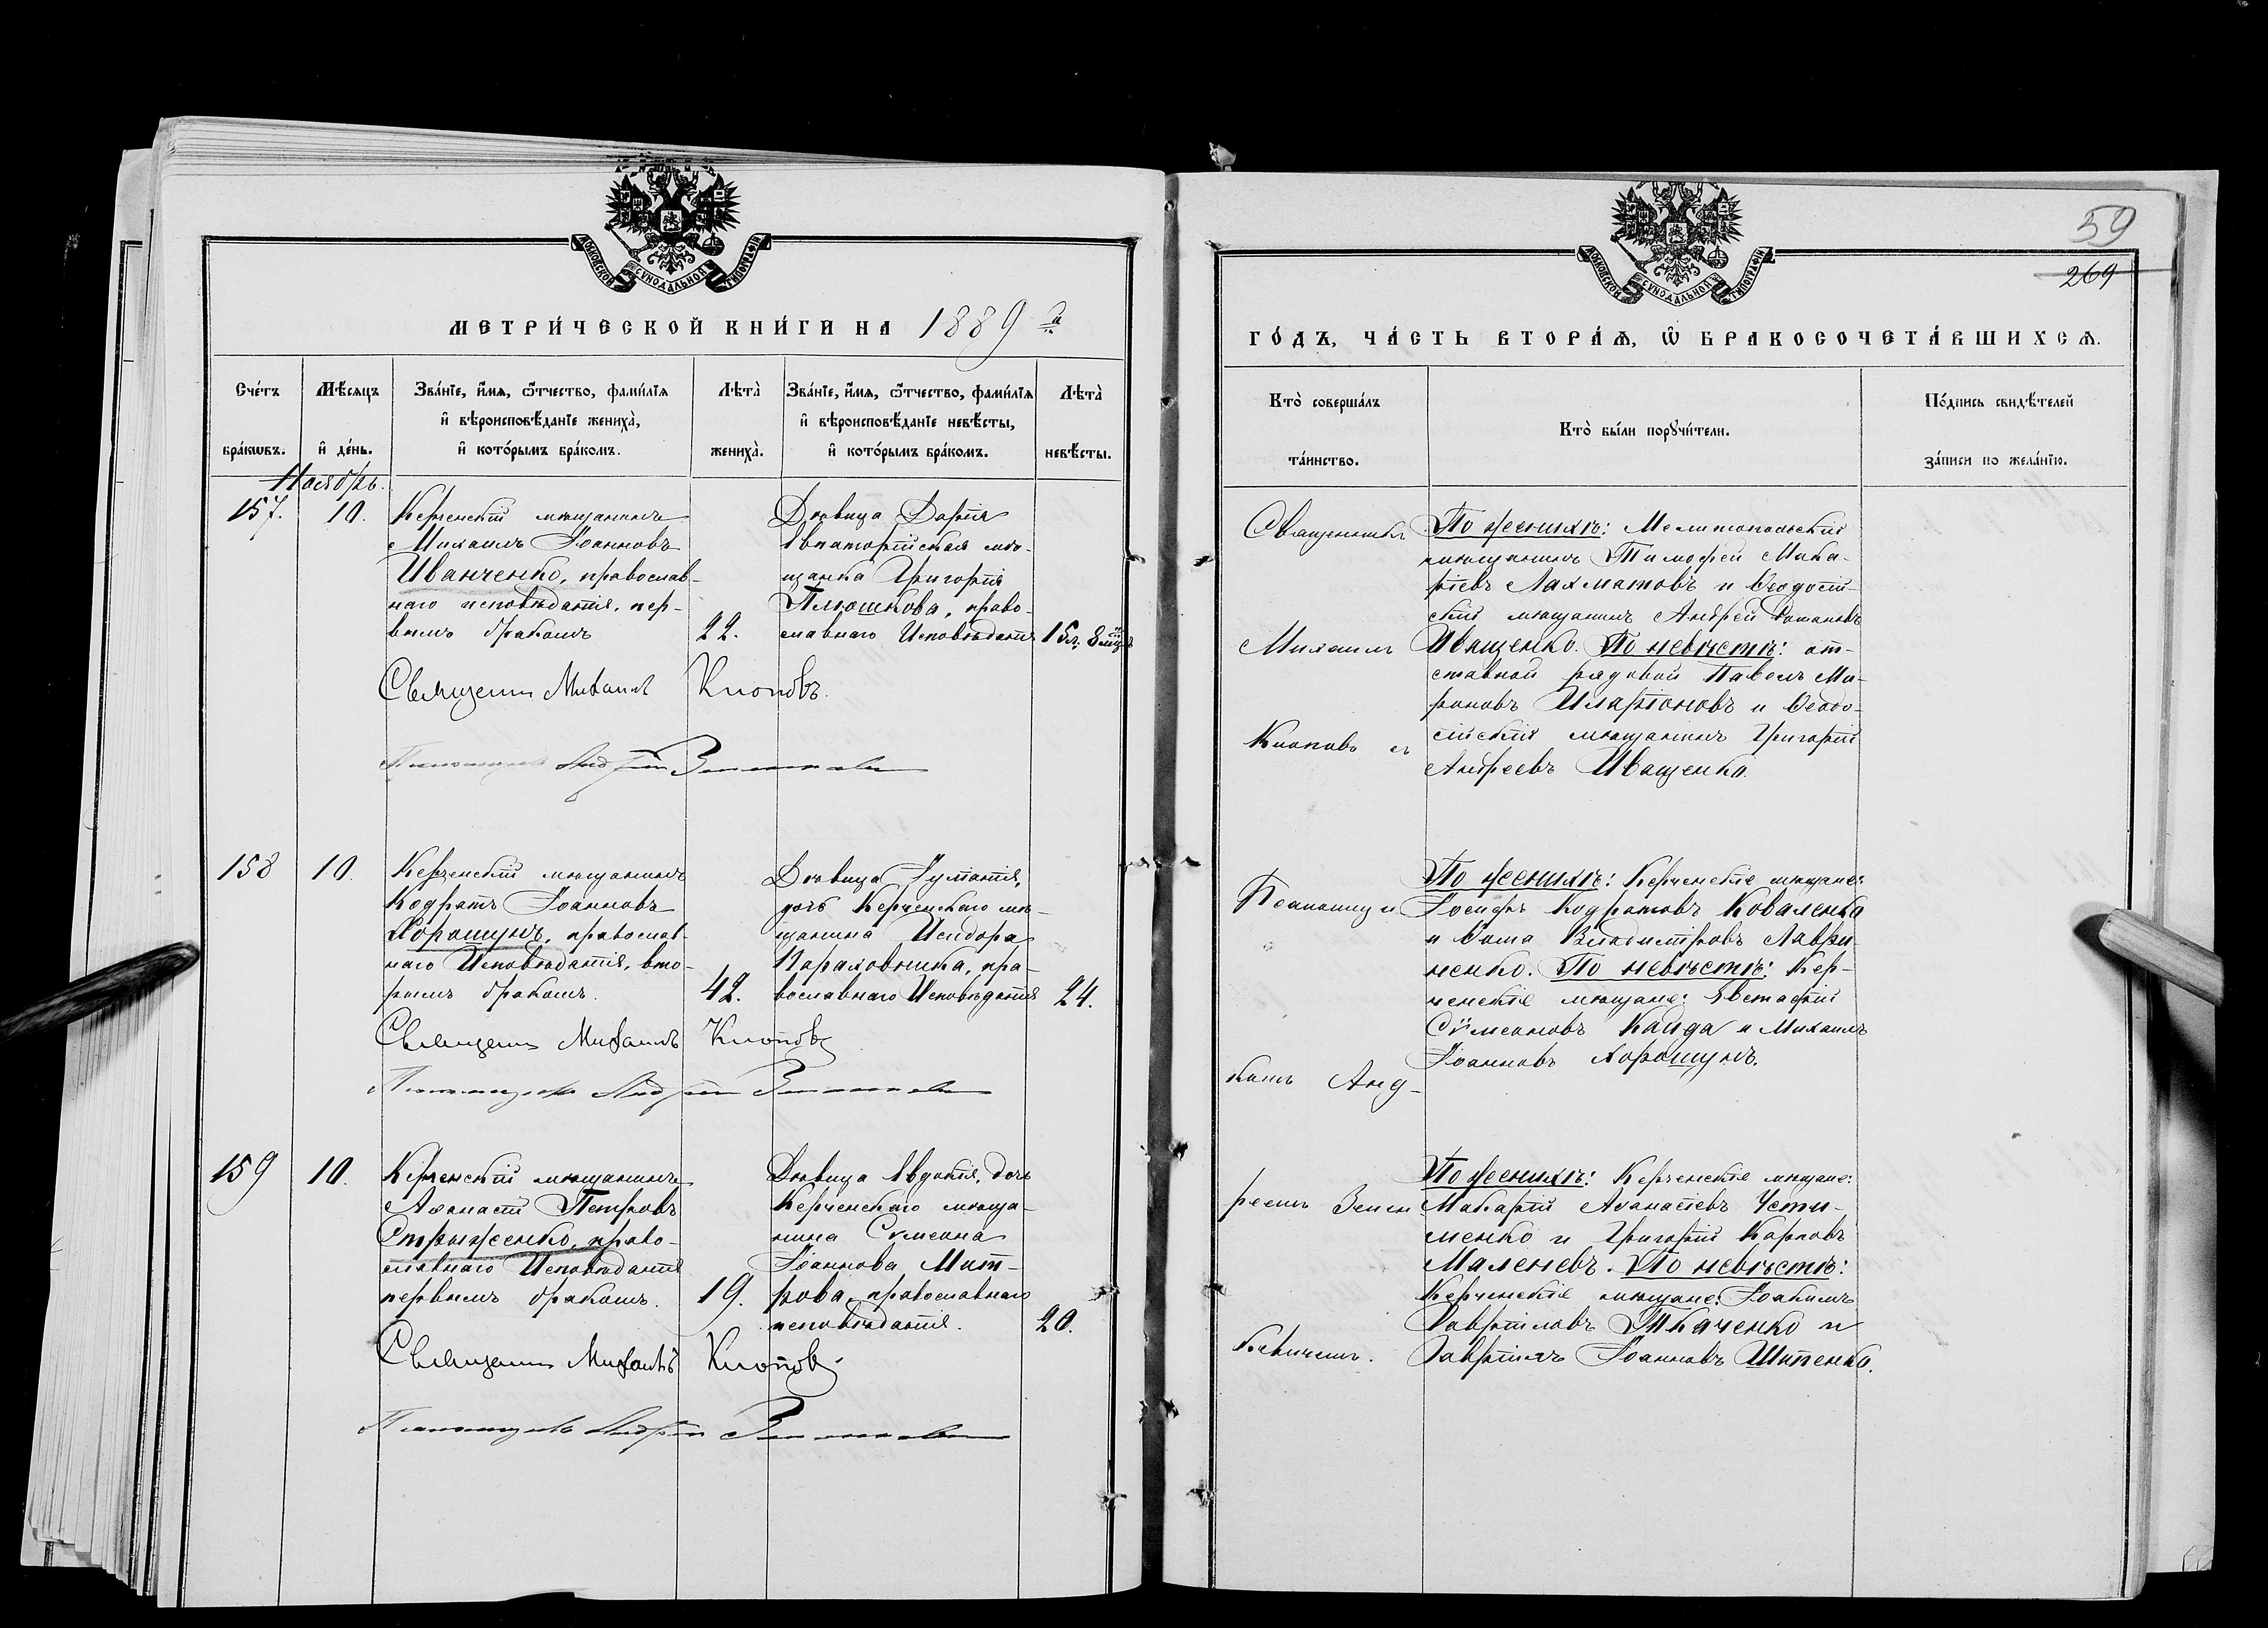 МОСКОВСКОЙ СѴНОДАЛЬНОЙ ТИПОГРАФІИ
МЕТРИ́ЧЕСКОЙ КНИ́ГИ НА 1889 й
Сче́тъ
бра́кѡвъ.
Мѣ́сяцъ
и҆ де́нь.
Зва́нїе, и҆́мѧ, ѻ҆́тчество, фами́лїѧ
и҆ вѣроисповѣ́данїе жениха̀,
и҆ кото́рымъ бра́комъ.
Лѣта̀
жениха̀.
Зва́нїе, и҆́мѧ, ѻ҆́тчество, фами́лїѧ
и҆ вѣроисповѣ́данїе невѣ́сты,
и҆ кото́рымъ бра́комъ.
Лѣта̀
невѣ́сты.
Ноябрь.
157.
10.
Керченскій мѣщанинъ
Михаилъ Іоанновъ
Иванченко, православ-
наго исповѣданія, пер-
вымъ бракомъ
22.
Дѣвица Дарія
Евпаторійская мѣ-
щанка Григорія
Плюшкова, право-
славнаго Исповѣданія
15 л. 8 мцъ
Священникъ Михаилъ Клоповъ.
Псаломщикъ Андрей
158
10.
Керченскій мѣщанинъ
Кодратъ Іоанновъ
Хорошунъ, православ-
наго Исповѣданія, вто-
рымъ бракомъ.
42.
Дѣвица Іуліанія,
дочь Керченскаго мѣ-
щанина Исидора
Параховника, пра-
вославнаго Исповѣданія
24.
Священникъ Михаилъ Клоповъ
Псаломщикъ Андрей
159
10.
Керченскій мѣщанинъ
Аѳанасій Петровъ
Стрыженко, право-
славнаго Исповѣданія
первымъ бракомъ.
19.
Дѣвица Евдокія, дочь
Керченскаго мѣща-
нина Сѵмеона
Іоаннова Мит-
рова, православнаго
исповѣданія.
20.
Священникъ Михаилъ Клоповъ
Псаломщикъ Андрей
59
269
МОСКОВСКОЙ СѴНОДАЛЬНОЙ ТИПОГРАФІИ
ГО́ДЪ, ЧА́СТЬ ВТОРА́Ѧ, Ѡ҆ БРАКОСОЧЕТА́ВШИХСѦ.
Кто̀ соверша́лъ
та́инство.
Кто̀ бы́ли порꙋчи́тели.
По́дпись свидѣ́телей
за́писи по жела́нїю.
Священникъ
Михаилъ
Клоповъ съ
По женихѣ: Мелитопольскій
мѣщанинъ Тимоѳей Мака-
ріевъ Лахматовъ и Ѳеодосій-
скій мѣщанинъ Андрей Романовъ
Иващенко. По невѣстѣ: от-
ставной рядовой Павелъ Ми-
роновъ Иларіоновъ и Ѳеодо-
сійскій мѣщанинъ Григорій
Андреевъ Иващенко.
Псаломщи
комъ Анд-
По женихѣ: Керченскіе мѣщане:
Іосифъ Кодратовъ Коваленко
и Ѳома Владиміровъ Лаври-
ненко. По невѣстѣ: Кер-
ченскіе мѣщане: Евстафій
Сѵмеоновъ Кайда и Михаилъ
Іоанновъ Хорошунъ.
реемъ Зень
кевичемъ.
По женихѣ: Керченскіе мѣщане:
Макарій Аѳанасіевъ Усти-
менко и Григорій Карповъ
Маленевъ. По невѣстѣ:
Керченскіе мѣщане: Іоакимъ
Гавріиловъ Ткаченко и
Гавріилъ Іоанновъ Шипенко.